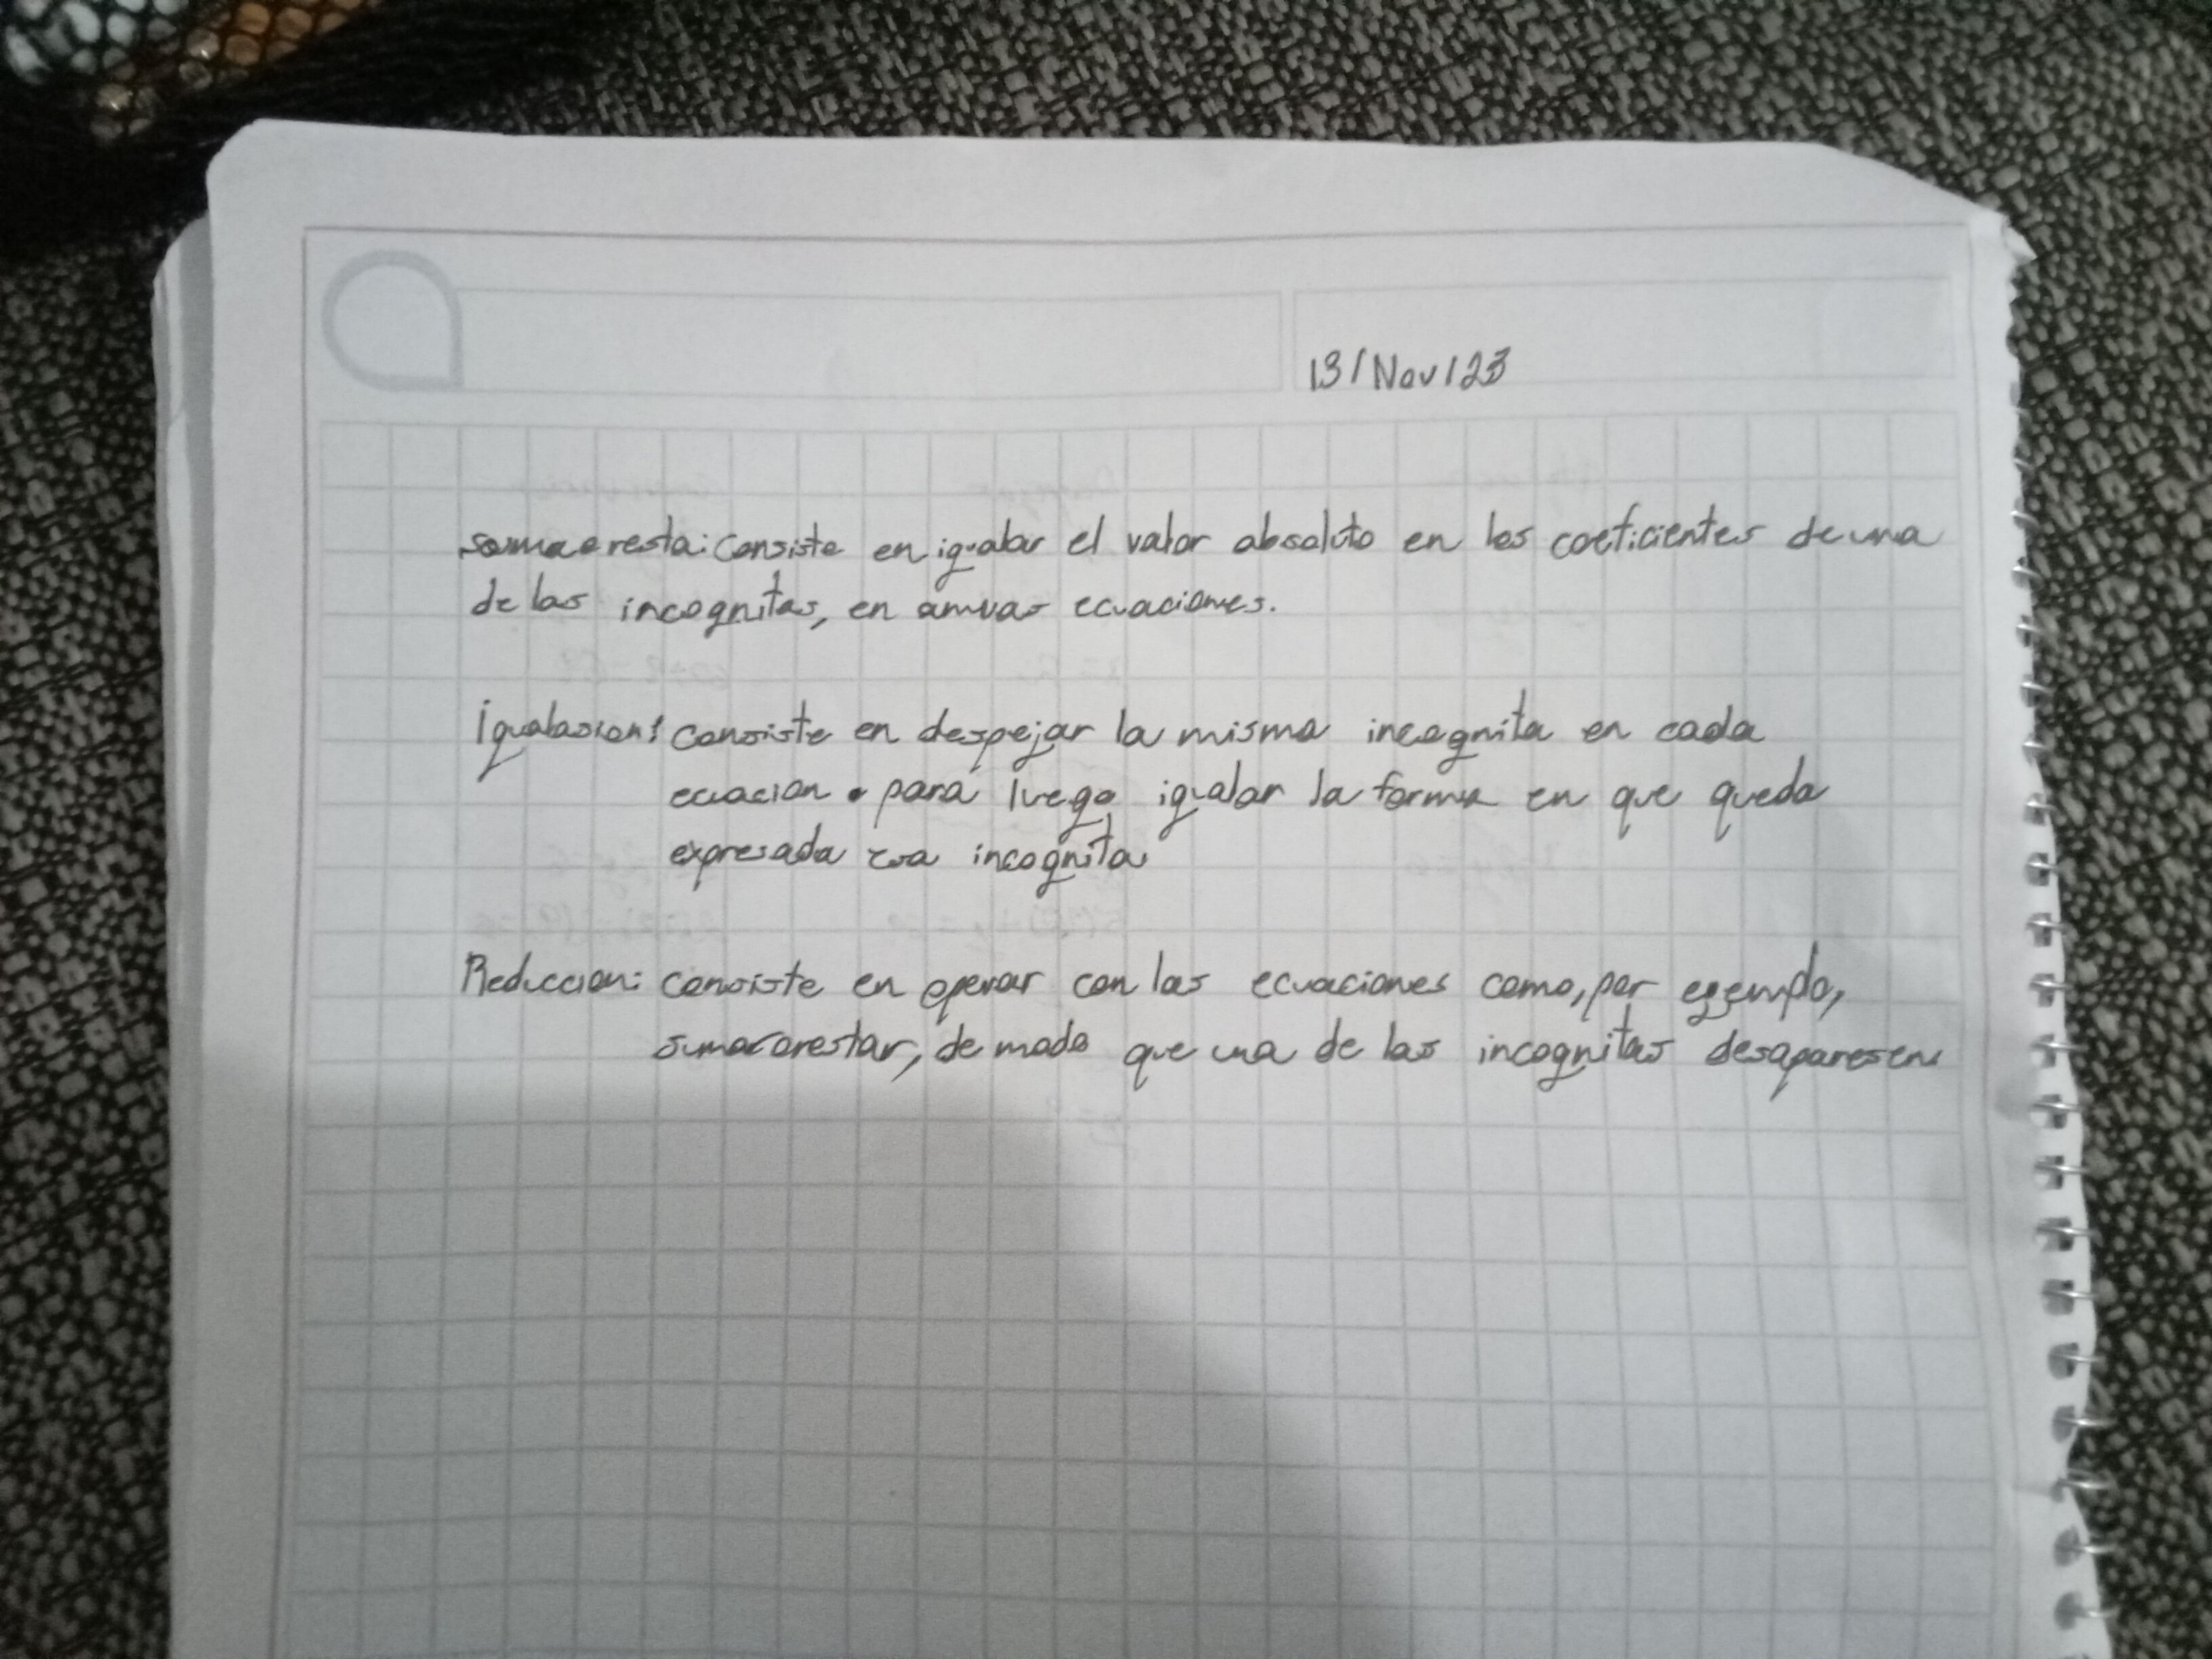 13/Nov/23
suma o resta: Consiste en igualar el valor absoluto en los coeficientes de una
de las incognitas, en amvas ecuaciones.
Igualasion: consiste en despejar la misma incognita en cada
ecuacion para luego igualar la forma en que queda
expresada esa incognita
Reduccion: consiste en operar con las ecuaciones como, por egemplo,
sumar o restar, de modo que una de las incognitas desaparesen